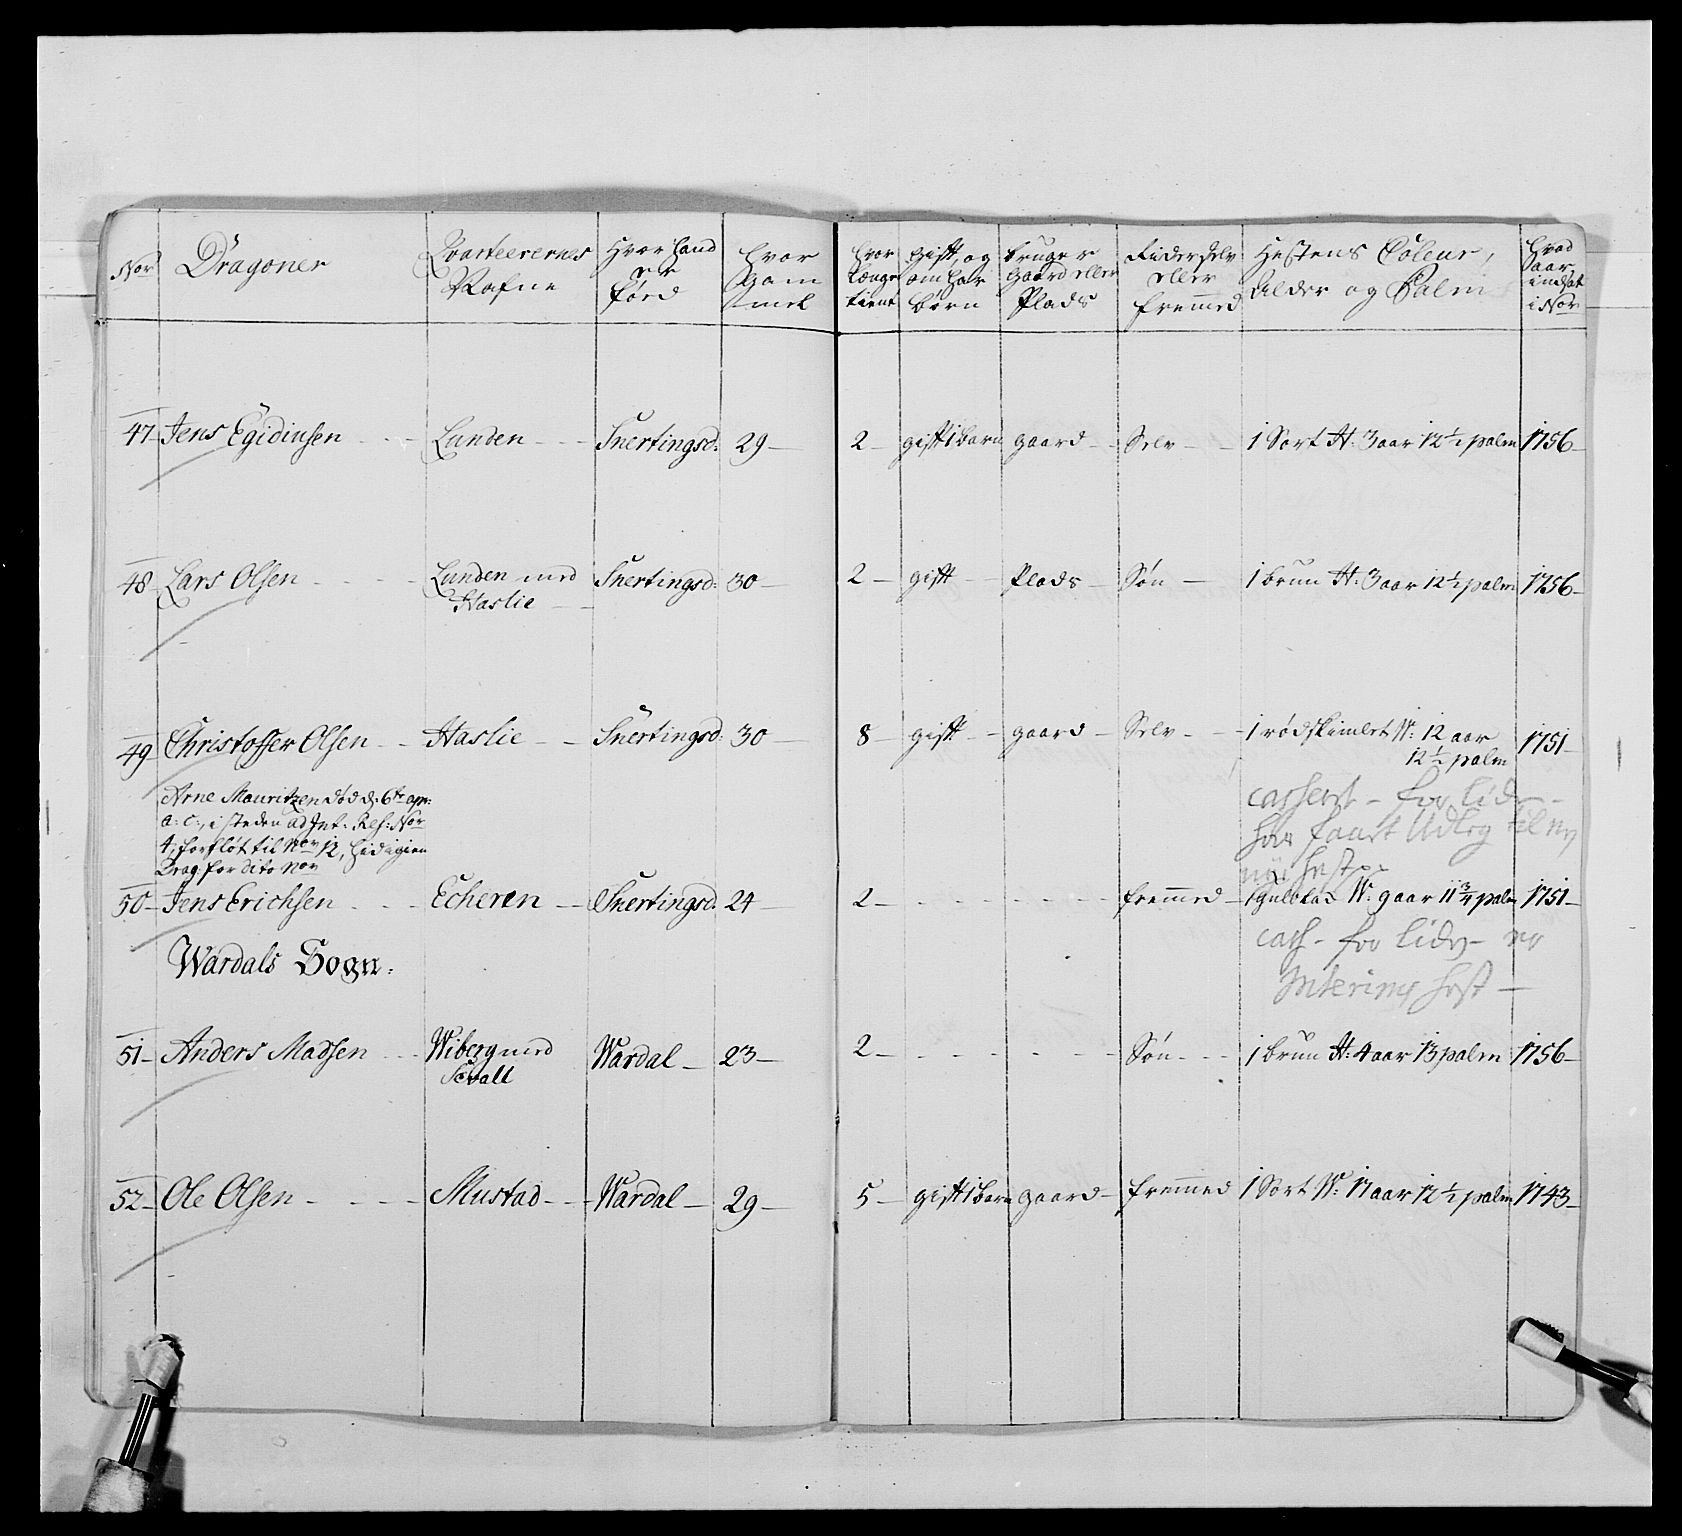 Nor Dragoner Qvarteerernes Nafne Hvor hand er föed hvor Gam mel hvor længe tient gift, og om har börn bruger gaard eller Plads Fader selv eller fremmed Hestens Coleur, Alder og Palm hvad aar indsat i Nor
47 Jens Egidiusen Lunden Snertingsd: 29 2 gift 1 barn gaard Selv 1 Sort H: 3 aar 12½ palm 1756
48 Lars Olsen Lunden med Haslie Snertingsd: 30 2 gift Plads Søn 1 brun H: 3 aar 12½ palm 1756
49 Christoffer Olsen Haslie Snertingsd: 30 8 gift gaard Selv 1 rødskimlet W: 12 aar 12½ palm 1751
Arne Mauritzen död d: 6te apr:
a: c:, i steden ad Int: Res: Nor
4, forfløt til Nor 12, hid igien
Drag: for dito Nor
casseret - for
har faaet Udleg til ny
hest
50 Jens Erichsen Echeren Snertingsd: 24 2 fremmed 1 gulblak W: 9 aar 11¾ palm 1751
cass - for
Interims hest
Wardals Sogn:
51 Anders Madsen Wiberg med Sevall Wardal 23 2 Søn 1 brun H: 4 aar 13 palm 1756
52 Ole Olsen Mustad Wardal 29 5 gift 1 barn gaard fremmed 1 Sort W: 17 aar 12½ palm 1743